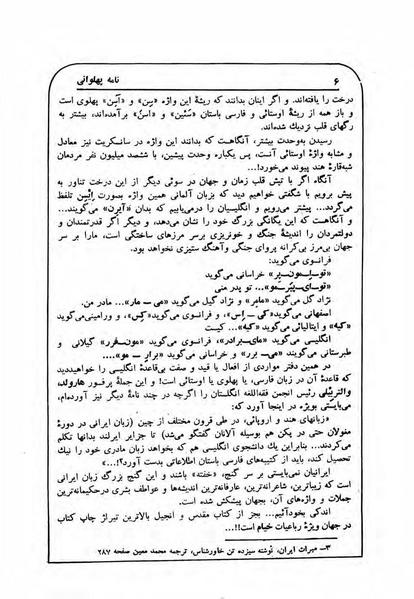 ۶ نامه پهلوانی
درخت را یافته‌اند. و اگر اینان بدانند که ریشهٔ این واژه «سِن» و «آسِن» پهلوی است
و باز همه از ریشهٔ اوستائی و فارسی باستان و برآمده‌اند، بیشتر به
رگهای قلب نزدیک شده‌اند.
رسیدن به‌وحدت بیشتر، آنگاهست که بدانند این واژه در سانسکریت نیز معادل
و مشابه واژهٔ اوستائی آنست، پس یکباره وحدت پیشین، با ششصد میلیون نفر مردمان
شبه‌قارهٔ هند پیوند می‌خورد!...
آنگاه اگر با تپش قلب زمان و جهان در سوئی دیگر از این درخت تناور به
پیش برویم با شگفتی خواهیم دید که بزبان آلمانی همین واژه بصورت تلفظ
می‌گردد... بیشتر می‌رویم و انگلیسیان را درمی‌یابیم که بدان «آیرن» می‌گویند...
و آنگاهست که این یگانگی بزرگ خود را نشان می‌دهد، و دیگر اگر قدرتمندان و
دولتمردان را اندیشهٔ جنگ و خونریزی برسر مرزهای ساختگی است، مارا بر سر
جهان بی‌مرز بی‌کرانه پروای جنگی وآهنگ ستیزی نخواهد بود.
فرانسوی می‌گوید:
خراسانی می‌گوید
تو پدر منی
نژاد گل می‌گوید و نژاد گیل می‌گوید «می ـ مار»... مادر من.
اصفهانی می‌گوید و فرانسوی می‌گوید و ورامینی‌می‌گوید
«کیه» و ایتالیائی می‌گوید «کیه»... کیست
انگلیسی می‌گوید «مای‌ـ برادر»، فرانسوی می‌گوید گیلانی و
طبرستانی می‌گویند «می‌ـ برر» و خراسانی می‌گوید
در همین دفتر مواردی از افعال یا قید و صفت بی‌قاعدهٔ انگلیسی را خواهیددید
که قاعدهٔ آن در زبان فارسی، یا پهلوی یا اوستائی است! و این جملهٔ پرفسور هارولد،
والتربیلی رئیس انجمن فقه‌اللغه انگلستان را اگرچه در چند نامهٔ دیگر نیز آورده‌ام،
می‌بایستی بویژه در اینجا آورد که:
«زبانهای هند و اروپائی، در طی قرون مختلف از چین (زبان ایرانی در دورهٔ
مغولان حتی در پکن هم بوسیله آلانان گفتگو می‌شد) تا جزایر ایرلند بدانها تکلم
می‌کردند... بنابراین یک دانشجوی انگلیسی هم که بخواهد زبان مادری خود را نیک
تحصیل کند، باید از کتیبه‌های فارسی باستان اطلاعاتی بدست آورد؟!...»
ایرانیان نمی‌بایستی بر سر گنج، «خفته» باشند! و این گنج بزرگ زبان ایرانی
است که زیباترین، شاعرانه‌ترین، عارفانه‌ترین اندیشه‌ها و عواطف بشری درحکیمانه‌ترین
جملات و واژه‌های آن، بجهان پیشکش شده است.
اندکی بخودآئیم... بجز از کتاب مقدس و انجیل بالاترین تیراژ چاپ کتاب
در جهان ویژهٔ رباعیات خیام است!!...
۳ـ میراث ایران، نوشته سیزده تن خاورشناس، ترجمه محمد معین صفحه ۲۸۷